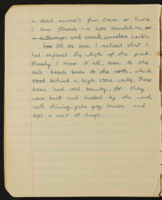 a dead animal's fur. Once or twice
I saw flowers - a late dandelion or
a buttercup and small, nameless herbs.
for As so soon I realised that I
had explored the whole of the park.
Already I knew it all, down to the
tall beech trees to the north, which
stood behind a high stone wall. These
trees had real beauty, for they
were bent and twisted by the wind,
with shining, pale grey trunks and
left a mist of twigs.